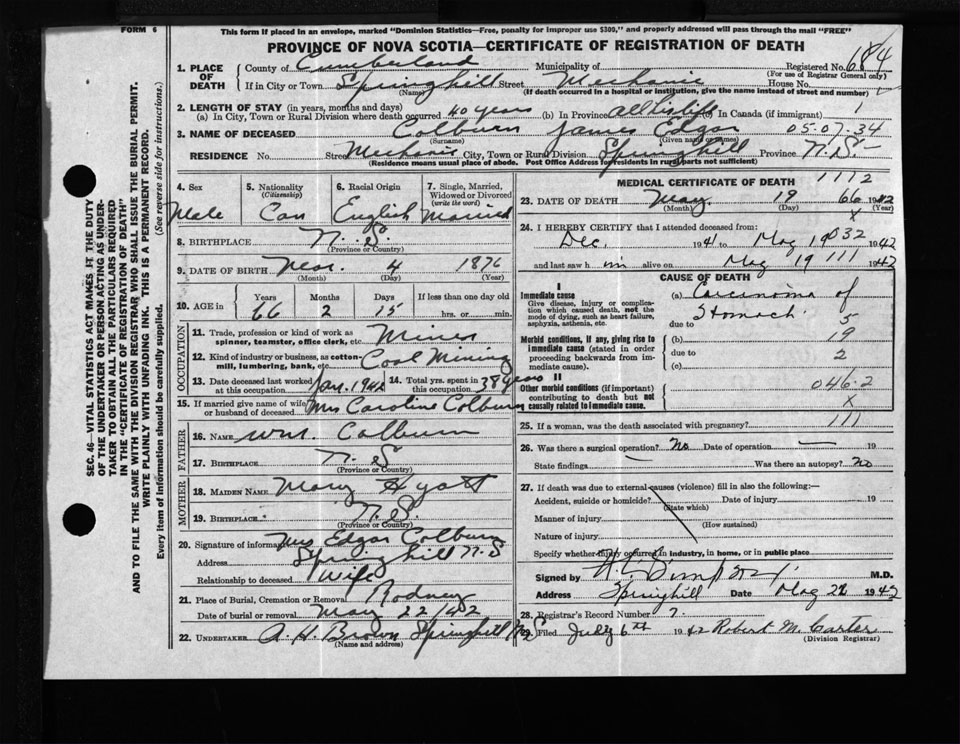 FORM 6
This form if placed in an envelope, marked "Dominion Statistics—Free, penalty for improper use $300," and properly addressed will pass through the mail "FREE"
PROVINCE OF NOVA SCOTIA—CERTIFICATE OF REGISTRATION OF DEATH
SEC. 46—VITAL STATISTICS ACT MAKES IT THE DUTY
OF THE UNDERTAKER OR PERSON ACTING AS UNDER-
TAKER TO OBTAIN ALL THE PARTICULARS REQUIRED
IN THE "CERTIFICATE OF REGISTRATION OF DEATH"
AND TO FILE THE SAME WITH THE DIVISION REGISTRAR WHO SHALL ISSUE THE BURIAL PERMIT.
WRITE PLAINLY WITH UNFADING INK. THIS IS A PERMANENT RECORD.
Every item of information should be carefully supplied. (See reverse side for instructions.)
1. PLACE OF DEATH
County of Cumberland Municipality of Registered No. 684
(For use of Registrar General only)
If in City or Town Springhill Street Mechanic House No.
(Name) (If death occurred in a hospital or institution, give the name instead of street and number)
2. LENGTH OF STAY (in years, months and days)
(a) In City, Town or Rural Division where death occurred 40 years (b) In Province all his life (c) In Canada (if immigrant) 1
3. NAME OF DECEASED Colburn James Edgar 05.07.34
(Surname) (Given name or names)
RESIDENCE No. Street Mechanic City, Town or Rural Division Springhill Province N.S.
(Residence means usual place of abode. Post Office Address for residents in rural parts not sufficient)
4. Sex Male
5. Nationality (Citizenship) Can
6. Racial Origin English
7. Single, Married, Widowed or Divorced (write the word) Married
8. BIRTHPLACE N.S.
(Province or Country)
9. DATE OF BIRTH Mar. 4 1876
(Month) (Day) (Year)
10. AGE in Years 66 Months 2 Days 15 If less than one day old hrs. or min.
OCCUPATION
11. Trade, profession or kind of work as spinner, teamster, office clerk, etc. Miner
12. Kind of industry or business, as cotton-mill, lumbering, bank, etc. Coal Mining
13. Date deceased last worked at this occupation Jan. 1942 14. Total yrs. spent in this occupation 38 years
15. If married give name of wife or husband of deceased Mrs Caroline Colburn
FATHER
16. NAME Wm. Colburn
17. BIRTHPLACE N.S
(Province or Country)
MOTHER
18. MAIDEN NAME Mary Hyatt
19. BIRTHPLACE N.S.
(Province or Country)
20. Signature of informant Mrs Edgar Colburn
Address Springhill N.S
Relationship to deceased Wife
21. Place of Burial, Cremation or Removal Rodney
Date of burial or removal May 22/42
22. UNDERTAKER A. H. Brown Springhill N.S
(Name and address)
MEDICAL CERTIFICATE OF DEATH 1112
23. DATE OF DEATH May 19 66 1942
(Month) (Day) (Year)
x
24. I HEREBY CERTIFY that I attended deceased from:
Dec. 1941 to May 19 032 1942
and last saw him alive on May 19 111 1942
CAUSE OF DEATH
I
Immediate cause
Give disease, injury or complication which caused death, not the mode of dying, such as heart failure, asphyxia, asthenia, etc.
(a) Carcinoma of Stomach 5
due to
Morbid conditions, if any, giving rise to immediate cause (stated in order proceeding backwards from immediate cause).
(b) 19
due to 2
(c)
II
Other morbid conditions (if important) contributing to death but not causally related to immediate cause.
046.2
x
25. If a woman, was the death associated with pregnancy? 111
26. Was there a surgical operation? No Date of operation — 19
State findings — Was there an autopsy? No
27. If death was due to external causes (violence) fill in also the following:—
Accident, suicide or homicide? Date of injury 19
(State which)
Manner of injury
(How sustained)
Nature of injury
Specify whether injury occurred in industry, in home, or in public place
Signed by M.D.
Address Springhill Date May 1942
28. Registrar's Record Number 7.
29. Filed July 6th 1942 Robert M. Carter
(Division Registrar)